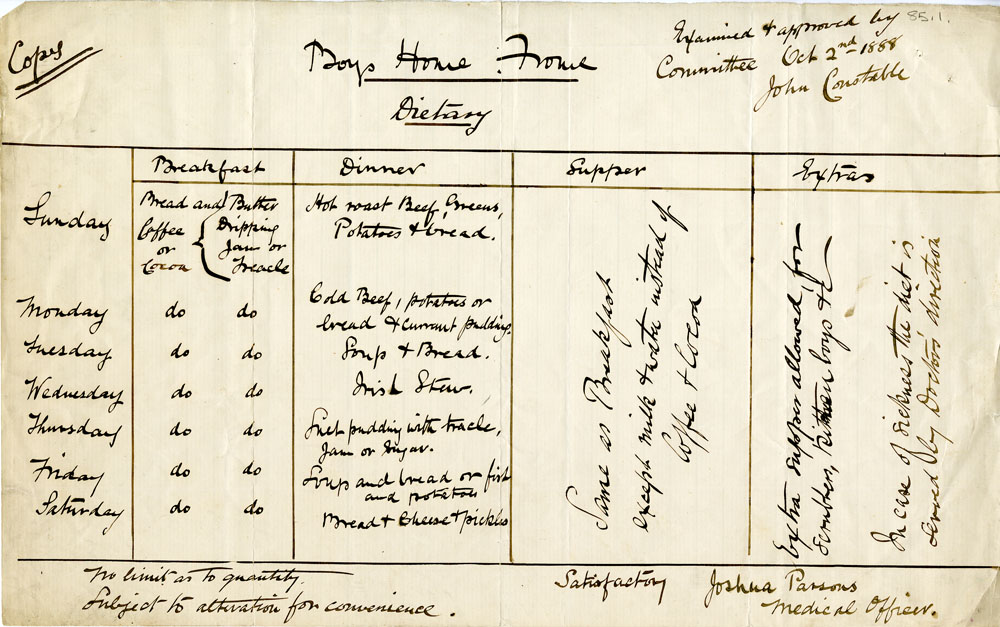 Copy
Boys Home Frome
Dietary
Examined & approved by
Committee Oct 2nd 1888
John Constable
85.1.
Breakfast Dinner Supper Extras
Sunday
Bread and Butter
Coffee Dripping
or Jam or
Cocoa Treacle
Hot roast Beef, Greens,
Potatoes & bread.
Monday do do
Cold Beef, potatoes or
bread & currant pudding.
Tuesday do do Soup & Bread.
Wednesday do do Irish Stew.
Thursday do do Suet pudding with tracle,
Jam or Sugar.
Friday do do Soup and bread or fish
and potatoes
Saturday do do Bread & Cheese & pickles
Same as Breakfast
except milk & water instead of
Coffee & Cocoa
Extra supper allowed for
scrubbers, Kitchen boys &c
In case of sickness the diet is
served by Doctor's direction
No limit as to quantity.
Subject to alteration for convenience.
Satisfactory Joshua Parsons
Medical Officer.